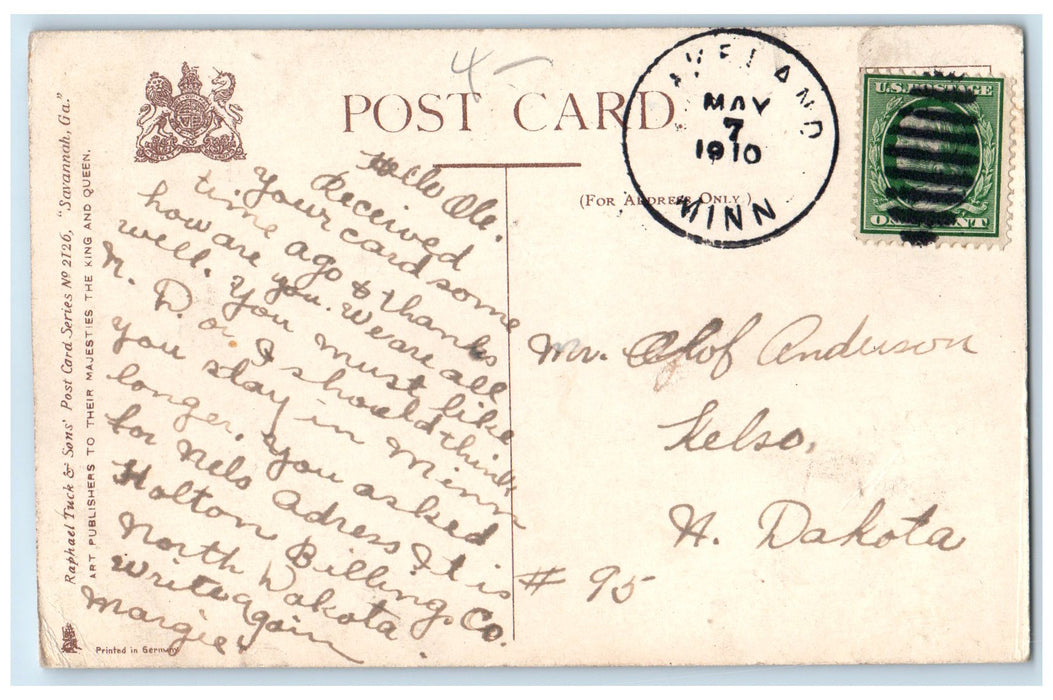 4-
POST CARD
(For Address Only)
AVELAND
MAY
7
1910
MINN
U.S. POSTAGE
ONE CENT
Raphael Tuck & Sons' Post Card Series No 2126, "Savannah, Ga."
ART PUBLISHERS TO THEIR MAJESTIES THE KING AND QUEEN.
Printed in Germany
Hello Ole.
Received
your card some
time ago & thanks
how are you. We are all
well. You must like
N. D. as I should think
you stay in Minn
longer. You asked
for Nels Adress It is
Holton Billings Co.
North Dakota.
write again
Margie.
Mr. Olof Anderson
Kelso,
N. Dakota
# 95